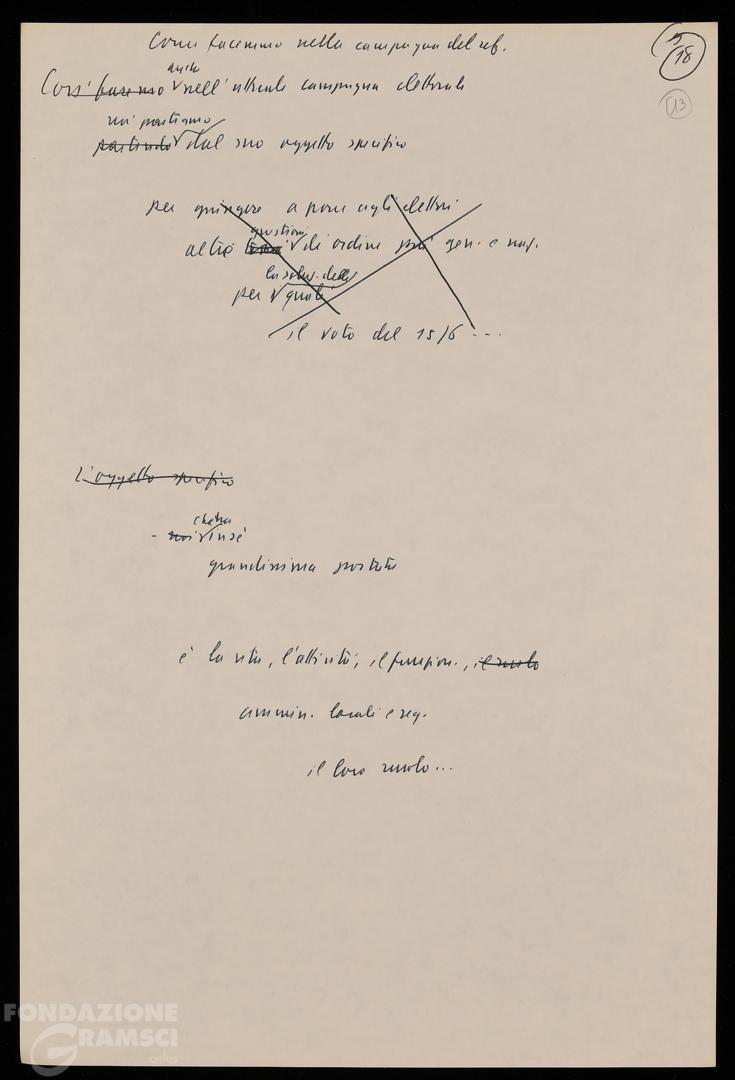 Come facemmo nella campagna del ref.
18
13
Così facemmo anche nell'attuale campagna elettorale
noi partiamo
partendo dal suo oggetto specifico
per giungere a porre agli elettori
altre questioni di ordine più gen. e naz.
per la soluz. delle quali
il voto del 15/6 ...
L'oggetto specifico
- noi che ha in sé
grandissima portata
è la vita, l'attività, il funzion., il ruolo
ammin. locali e reg.
il loro ruolo...
FONDAZIONE
GRAMSCI
onlus